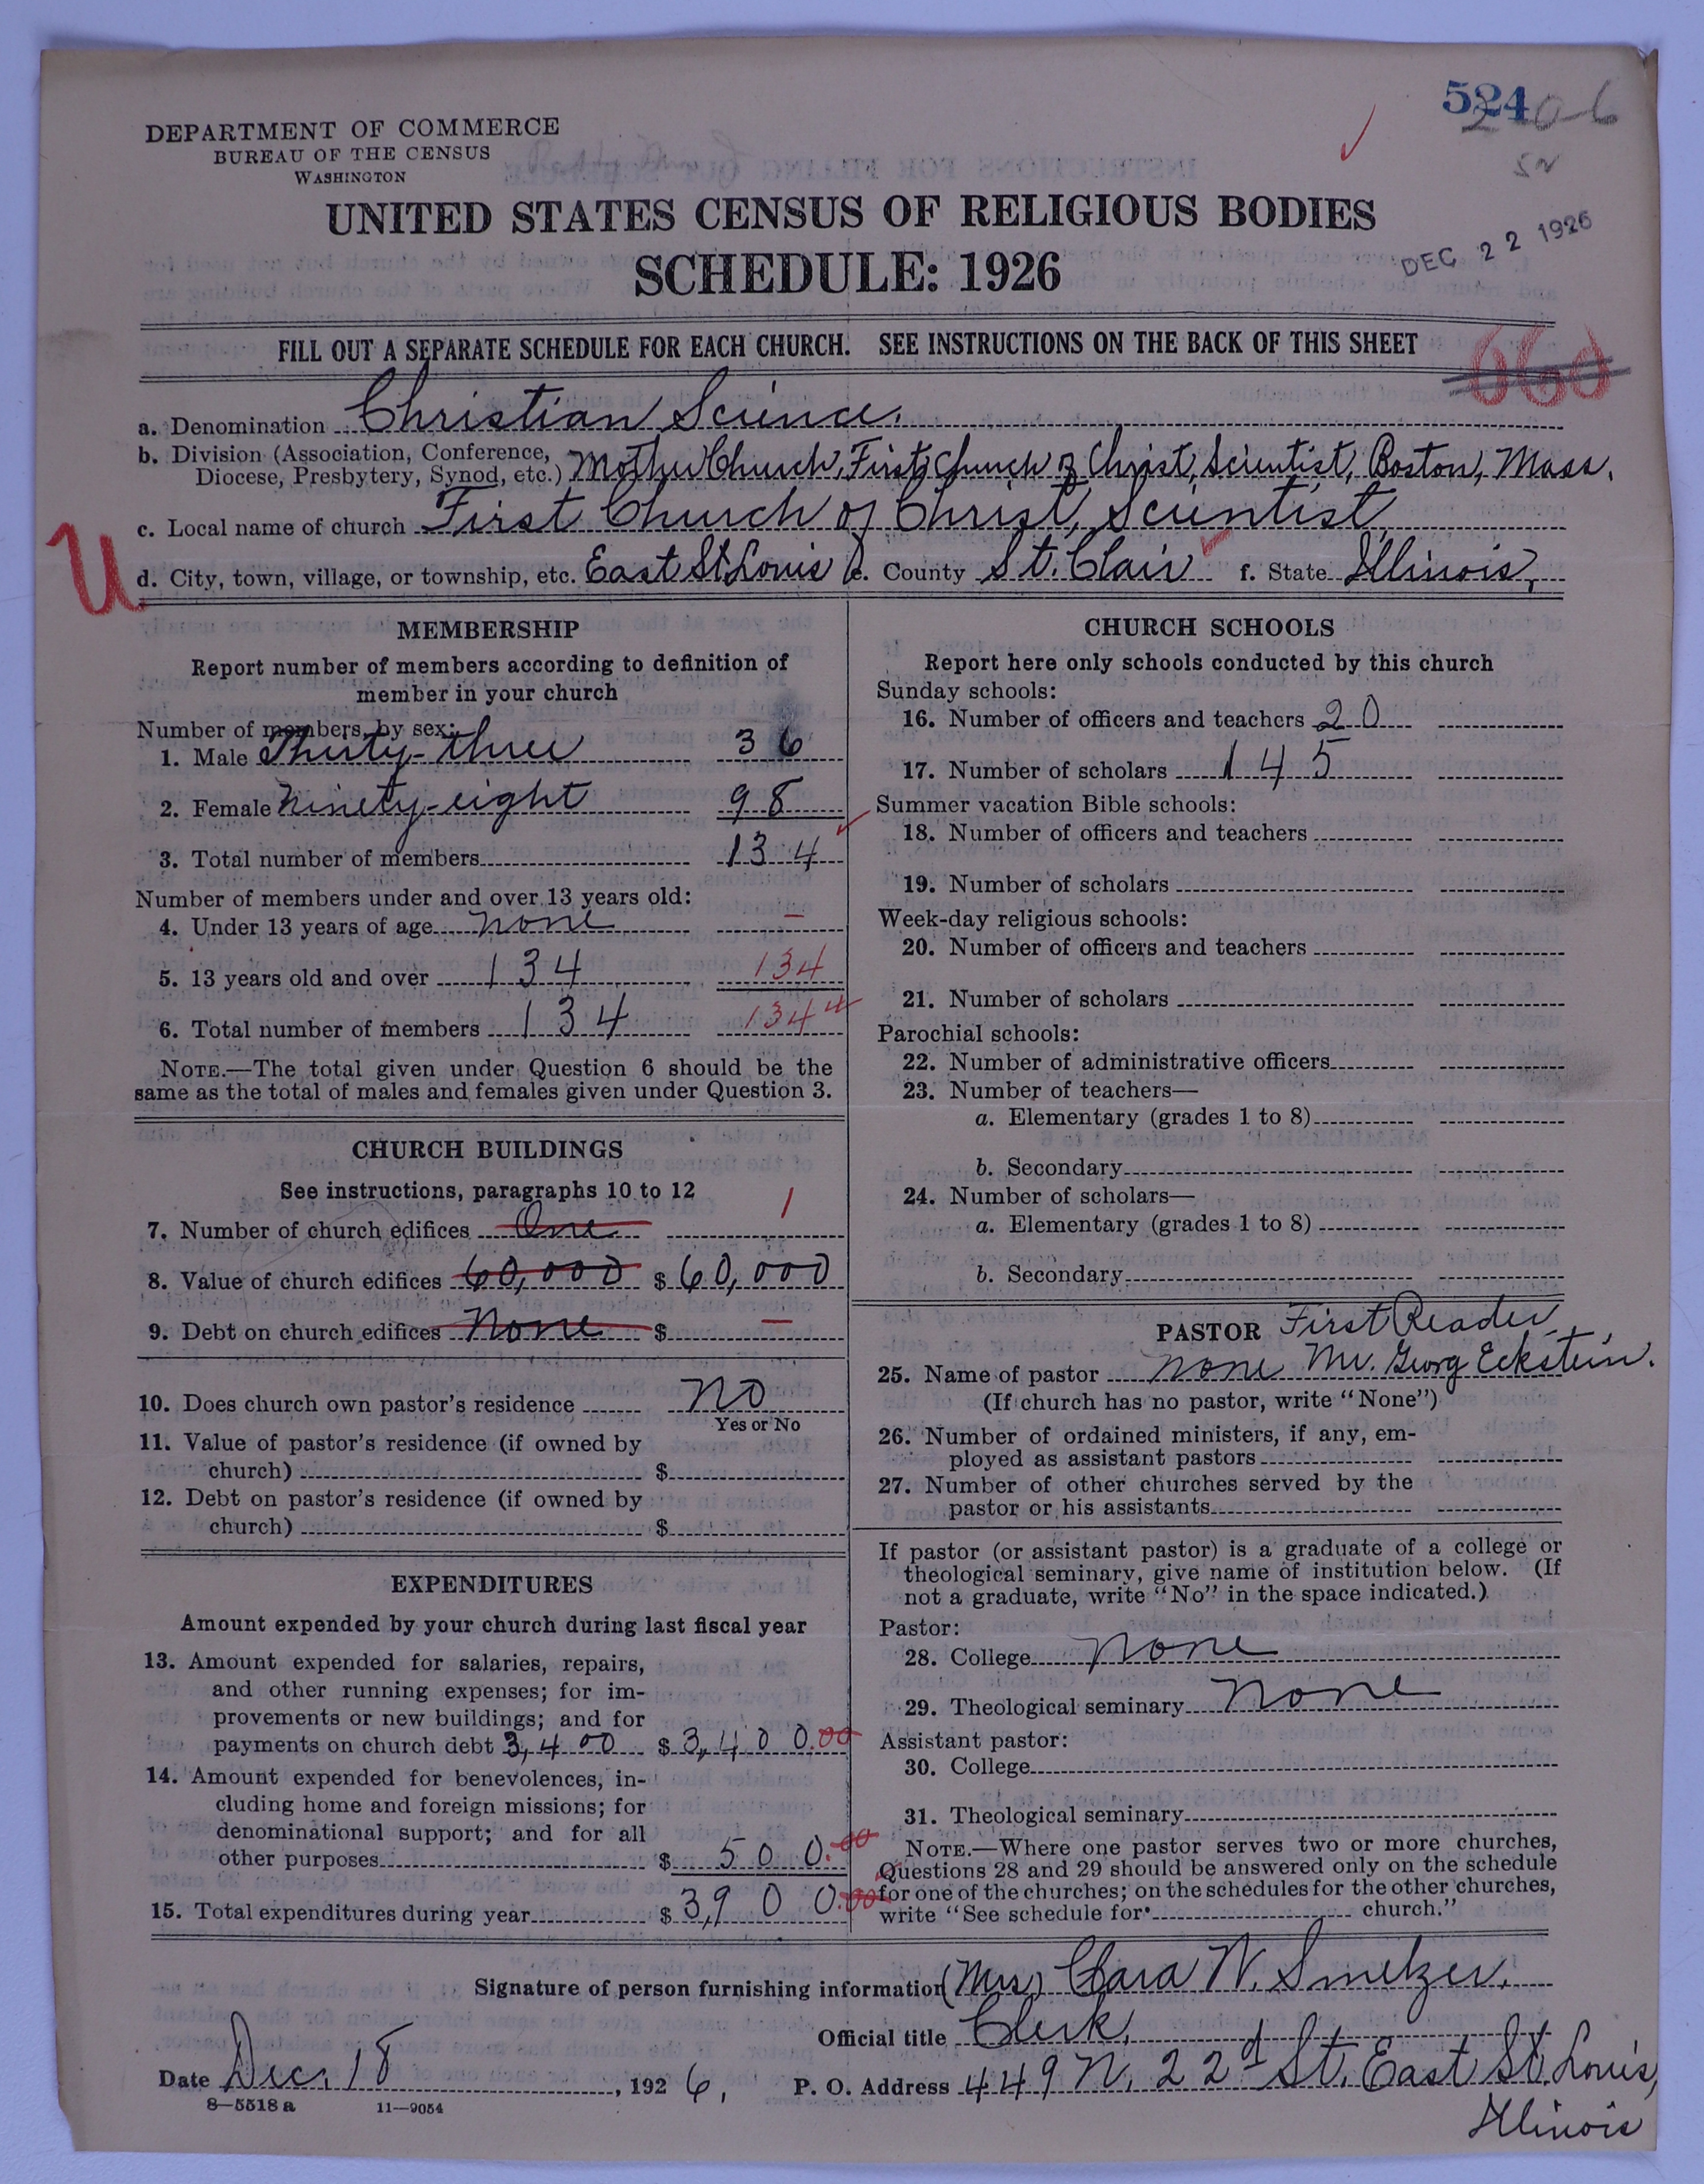 524
206
SN
DEPARTMENT OF COMMERCE
BUREAU OF THE CENSUS
WASHINGTON
UNITED STATES CENSUS OF RELIGIOUS BODIES
SCHEDULE: 1926
DEC 22 1926
FILL OUT A SEPARATE SCHEDULE FOR EACH CHURCH. SEE INSTRUCTIONS ON THE BACK OF THIS SHEET
660
a. Denomination Christian Science.
b. Division (Association, Conference,
Diocese, Presbytery, Synod, etc.) Mother Church, First Church of Christ, Scientist, Boston, Mass.
c. Local name of church First Church of Christ, Scientist,
U
d. City, town, village, or township, etc. East St. Louis e. County St. Clair f. State Illinois,
MEMBERSHIP
Report number of members according to definition of
member in your church
Number of members, by sex:
1. Male Thirty-three 36
2. Female Ninety-eight 98
3. Total number of members 134
Number of members under and over 13 years old:
4. Under 13 years of age none –
5. 13 years old and over 134 134
6. Total number of members 134 134
NOTE.—The total given under Question 6 should be the
same as the total of males and females given under Question 3.
CHURCH BUILDINGS
See instructions, paragraphs 10 to 12
7. Number of church edifices One 1
8. Value of church edifices 60,000 $ 60,000
9. Debt on church edifices None $ –
10. Does church own pastor's residence No
Yes or No
11. Value of pastor's residence (if owned by
church) $
12. Debt on pastor's residence (if owned by
church) $
EXPENDITURES
Amount expended by your church during last fiscal year
13. Amount expended for salaries, repairs,
and other running expenses; for im-
provements or new buildings; and for
payments on church debt 3,400 $ 3,400.00
14. Amount expended for benevolences, in-
cluding home and foreign missions; for
denominational support; and for all
other purposes $ 500.00
15. Total expenditures during year $ 3,900.00
CHURCH SCHOOLS
Report here only schools conducted by this church
Sunday schools:
16. Number of officers and teachers 20
17. Number of scholars 145
Summer vacation Bible schools:
18. Number of officers and teachers
19. Number of scholars
Week-day religious schools:
20. Number of officers and teachers
21. Number of scholars
Parochial schools:
22. Number of administrative officers
23. Number of teachers—
a. Elementary (grades 1 to 8)
b. Secondary
24. Number of scholars—
a. Elementary (grades 1 to 8)
b. Secondary
PASTOR First Reader,
25. Name of pastor none Mr. Georg Eckstein.
(If church has no pastor, write "None")
26. Number of ordained ministers, if any, em-
ployed as assistant pastors
27. Number of other churches served by the
pastor or his assistants
If pastor (or assistant pastor) is a graduate of a college or
theological seminary, give name of institution below. (If
not a graduate, write "No" in the space indicated.)
Pastor:
28. College none
29. Theological seminary none
Assistant pastor:
30. College
31. Theological seminary
NOTE.—Where one pastor serves two or more churches,
Questions 28 and 29 should be answered only on the schedule
for one of the churches; on the schedules for the other churches,
write "See schedule for church."
Signature of person furnishing information (Mrs) Clara N. Smelzer.
Official title Clerk,
Date Dec. 18, 1926, P. O. Address 449 N. 22d St. East St. Louis,
Illinois
8—5518 a 11—9054